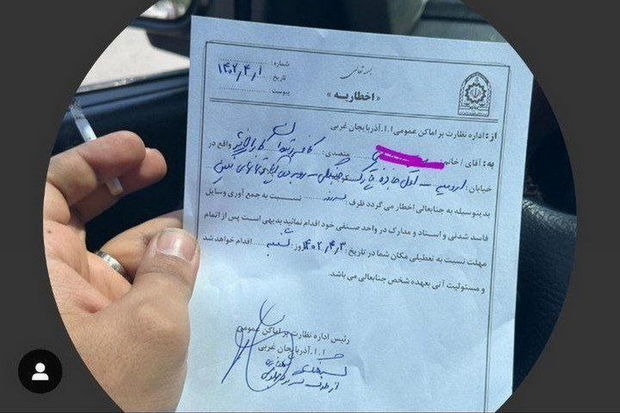 بسمه تعالی
شماره:
تاریخ: ۱۴۰۲٫۴٫۱
پیوست:
« اخطاریه »
از: اداره نظارت بر اماکن عمومی ا.ا.آذربایجان غربی
به: آقای / خانم متصدی: کافی واقع در
خیابان: ارومیه
بدینوسیله به جنابعالی اخطار می گردد ظرف: نسبت به جمع آوری وسایل
فاسد شدنی و اسناد و مدارک در واحد صنفی خود اقدام نمائید بدیهی است پس از اتمام
مهلت نسبت به تعطیلی مکان شما در تاریخ: ۱۴۰۲٫۴٫۳ روز: شنبه اقدام خواهد شد
و مسئولیت آتی بعهده شخص جنابعالی می باشد.
رئیس اداره نظارت بر اماکن عمومی
ا.ا.آذربایجان غربی
از طرف